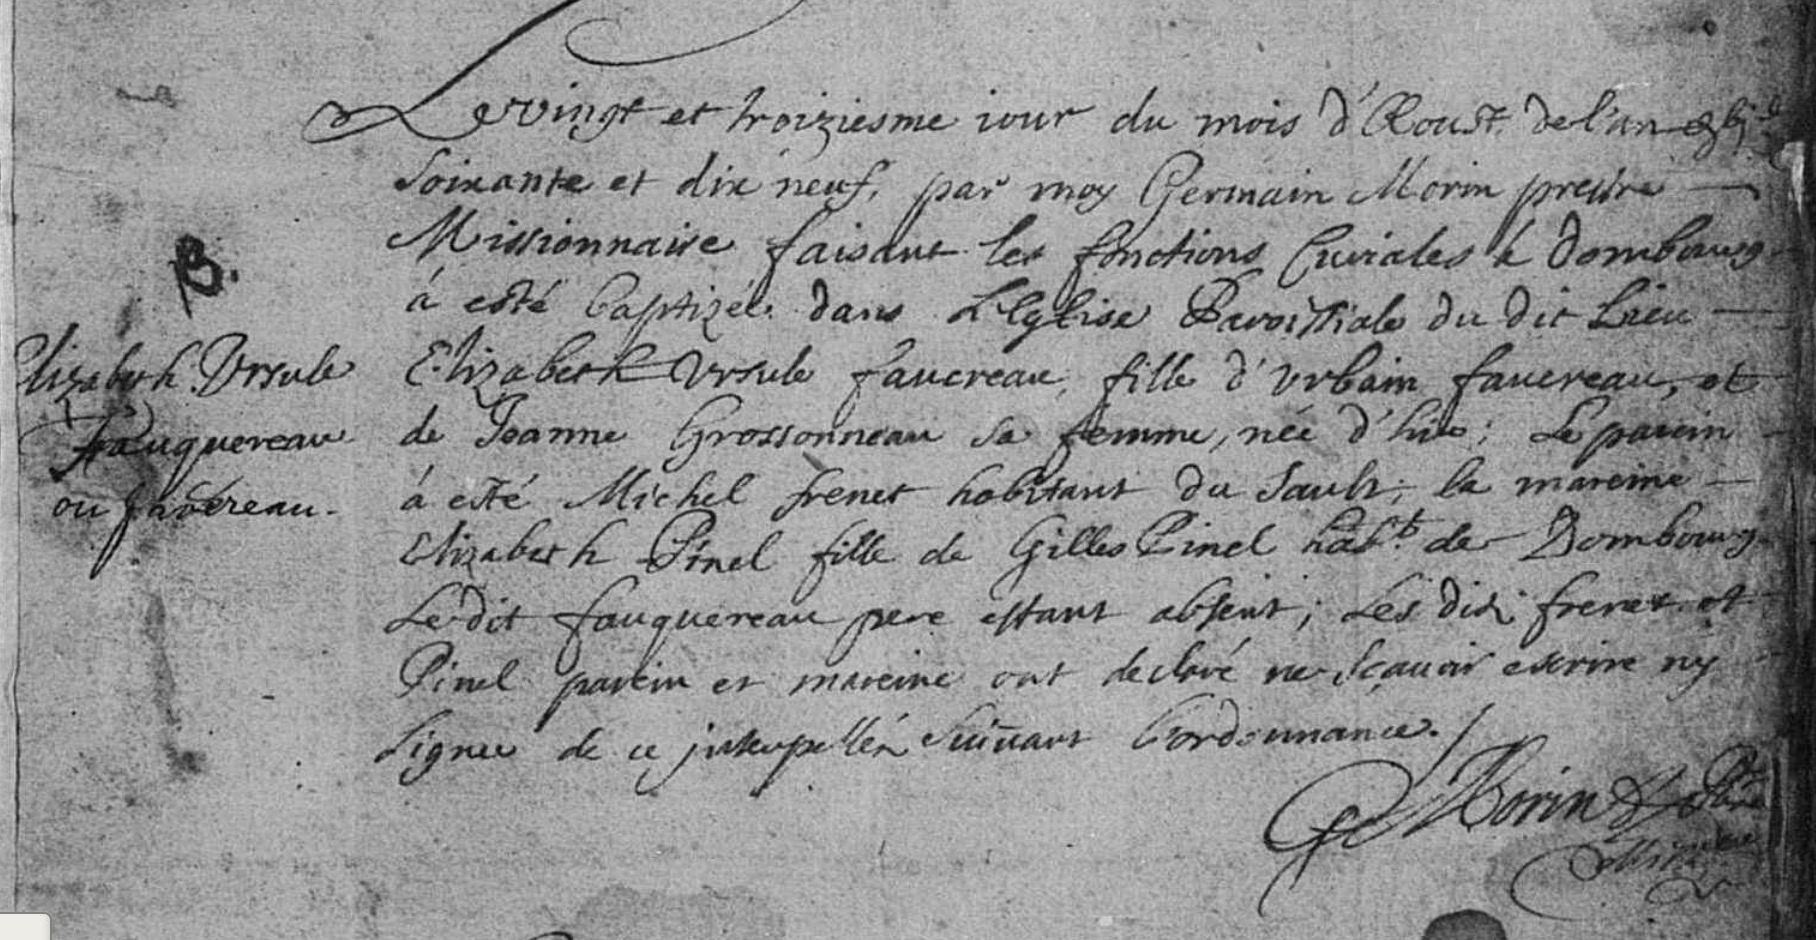 Le vingt et troiziesme iour du mois d'Aoust. de l'an
soixante et dix neuf, par moy Germain Morin prestre
Missionnaire faisant les fonctions Curiales à dombourg
B.
à esté baptizée dans L'Eglise Paroissiale du dit Lieu
Elizabeth Ursule Elizabeth Ursule favereau, fille d'Urbain favereau, et
fauquereau de Jeanne Grossonneau sa femme, née d'hier; Le parein
ou favereau. à esté Michel frenet habitant du Sault; la mareine
Elizabeth Pinel fille de Gilles Pinel habt. de Dombourg
Le dit fauquereau pere estant absent; Les dits frenet et
Pinel parein et mareine ont declaré ne sçavoir escrire ny
signer de ce interpellés suivant l'ordonnance.
G Morin